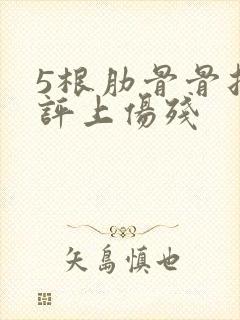 5根肋骨骨折
評上傷殘
矢島慎也